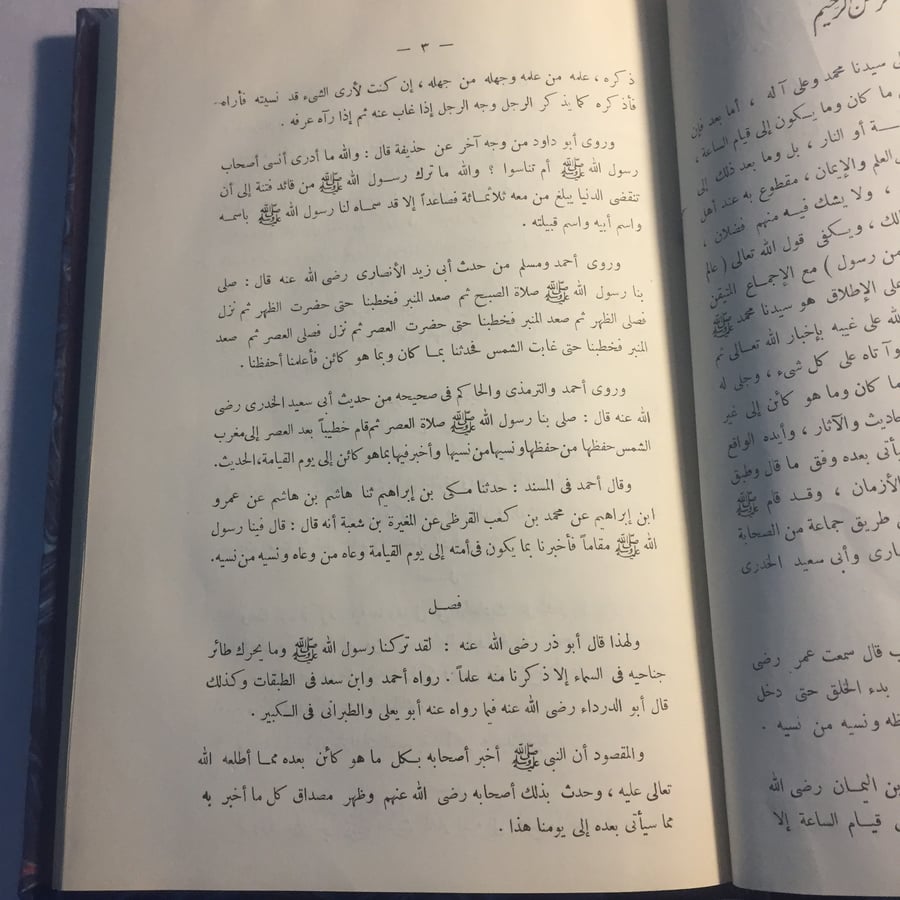 الرحيم
سيدنا محمد وعلى آله ، أما بعد فإن
ما كان وما يكون إلى قيام الساعة ،
أو النار ، بل وما بعد ذلك إلى
العلم والإيمان ، مقطوع به عند أهل
، ولا يشك فيه منهم فضلان ،
ويكفى قول الله تعالى ( عالم
من رسول ) مع الإجماع المتيقن
على الإطلاق هو سيدنا محمد ﷺ
الله على غيبه بإخبار الله تعالى ثم
وآتاه على كل شىء ، وجلى له
ما كان وما هو كائن إلى غير
والآثار ، وأيده الواقع
بعده وفق ما قال وطبق
الأزمان ، وقد قام ﷺ
طريق جماعة من الصحابة
وأبى سعيد الخدرى
قال سمعت عمر رضى
بدء الخلق حتى دخل
ونسيه من نسيه .
اليمان رضى الله
قيام الساعة إلا
— ٣ —
ذكره ، علمه من علمه وجهله من جهله ، إن كنت لأرى الشىء قد نسيته فأراه
فأذكره كما يذكر الرجل وجه الرجل إذا غاب عنه ثم إذا رآه عرفه .
وروى أبو داود من وجه آخر عن حذيفة قال : والله ما أدرى أنسى أصحاب
رسول الله ﷺ أم تناسوا ؟ والله ما ترك رسول الله ﷺ من قائد فتنة إلى أن
تنقضى الدنيا يبلغ من معه ثلاثمائة فصاعداً إلا قد سماه لنا رسول الله ﷺ باسمه
واسم أبيه واسم قبيلته .
وروى أحمد ومسلم من حدث أبى زيد الأنصارى رضى الله عنه قال : صلى
بنا رسول الله ﷺ صلاة الصبح ثم صعد المنبر فخطبنا حتى حضرت الظهر ثم نزل
فصلى الظهر ثم صعد المنبر فخطبنا حتى حضرت العصر ثم نزل فصلى العصر ثم صعد
المنبر فخطبنا حتى غابت الشمس فحدثنا بما كان وبما هو كائن فأعلمنا أحفظنا .
وروى أحمد والترمذى والحاكم فى صحيحه من حديث أبى سعيد الخدرى رضى
الله عنه قال : صلى بنا رسول الله ﷺ صلاة العصر ثم قام خطيباً بعد العصر إلى مغرب
الشمس حفظها من حفظها ونسيها من نسيها وأخبر فيها بما هو كائن إلى يوم القيامة ، الحديث.
وقال أحمد فى المسند : حدثنا مكى بن إبراهيم ثنا هاشم بن هاشم عن عمرو
ابن إبراهيم عن محمد بن كعب القرظى عن المغيرة بن شعبة أنه قال : قال فينا رسول
الله ﷺ مقاماً فأخبرنا بما يكون فى أمته إلى يوم القيامة وعاه من وعاه ونسيه من نسيه.
فصل
ولهذا قال أبو ذر رضى الله عنه : لقد تركنا رسول الله ﷺ وما يحرك طائر
جناحيه فى السماء إلا ذكرنا منه علماً . رواه أحمد وابن سعد فى الطبقات وكذلك
قال أبو الدرداء رضى الله عنه فيما رواه عنه أبو يعلى والطبرانى فى الكبير .
والمقصود أن النبى ﷺ أخبر أصحابه بكل ما هو كائن بعده مما أطلعه الله
تعالى عليه ، وحدث بذلك أصحابه رضى الله عنهم وظهر مصداق كل ما أخبر به
مما سيأتى بعده إلى يومنا هذا .